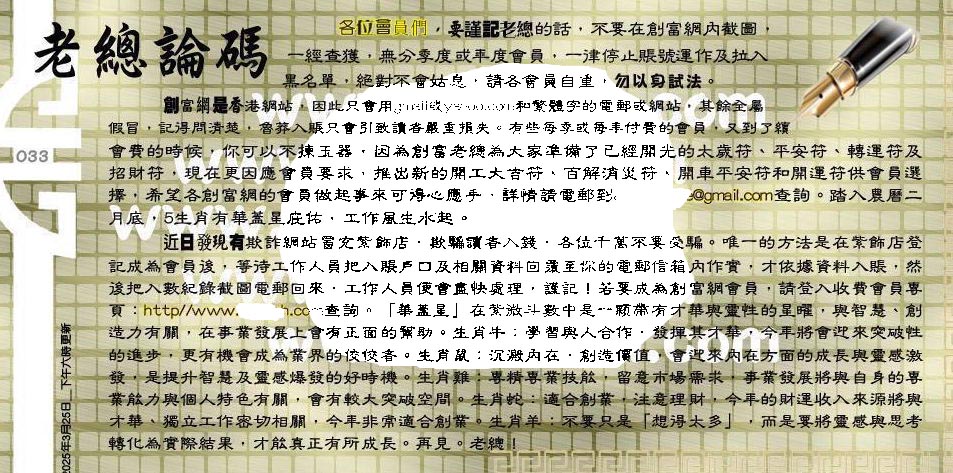 老總論碼
各位會員們，要謹記老總的話，不要在創富網內截圖，
一經查獲，無分季度或年度會員，一律停止賬號運作及拉入
黑名單，絕對不會姑息，請各會員自重，勿以身試法。
創富網是香港網站，因此只會用gmail或yahoo.com和繁體字的電郵或網站，其餘全屬
假冒，記得問清楚，魯莽入賬只會引致讀者嚴重損失。有些每季或每年付費的會員，又到了續
會費的時候，你可以不揀玉器，因為創富老總為大家準備了已經開光的太歲符、平安符、轉運符及
招財符，現在更因應會員要求，推出新的開工大吉符、百解消災符、開車平安符和開運符供會員選
擇，希望各創富網的會員做起事來可得心應手，詳情請電郵到 @gmail.com查詢。踏入農曆二
月底，5生肖有華蓋星庇佑，工作風生水起。
近日發現有欺詐網站冒充紫飾店，欺騙讀者入錢，各位千萬不要受騙。唯一的方法是在紫飾店登
記成為會員後，等待工作人員把入賬戶口及相關資料回覆至你的電郵信箱內作實，才依據資料入賬，然
後把入數紀錄截圖電郵回來，工作人員便會盡快處理，謹記！若要成為創富網會員，請登入收費會員專
頁：http//www. h.com查詢。「華蓋星」在紫微斗數中是一顆帶有才華與靈性的星曜，與智慧、創
造力有關，在事業發展上會有正面的幫助。生肖牛：學習與人合作，發揮其才華，今年將會迎來突破性
的進步，更有機會成為業界的佼佼者。生肖鼠：沉澱內在，創造價值，會迎來內在方面的成長與靈感激
發，是提升智慧及靈感爆發的好時機。生肖雞：專精專業技能，留意市場需求，事業發展將與自身的專
業能力與個人特色有關，會有較大突破空間。生肖蛇：適合創業，注意理財，今年的財運收入來源將與
才華、獨立工作密切相關，今年非常適合創業。生肖羊：不要只是「想得太多」，而是要將靈感與思考
轉化為實際結果，才能真正有所成長。再見。老總！
033
2025年3月25日_下午六時更新